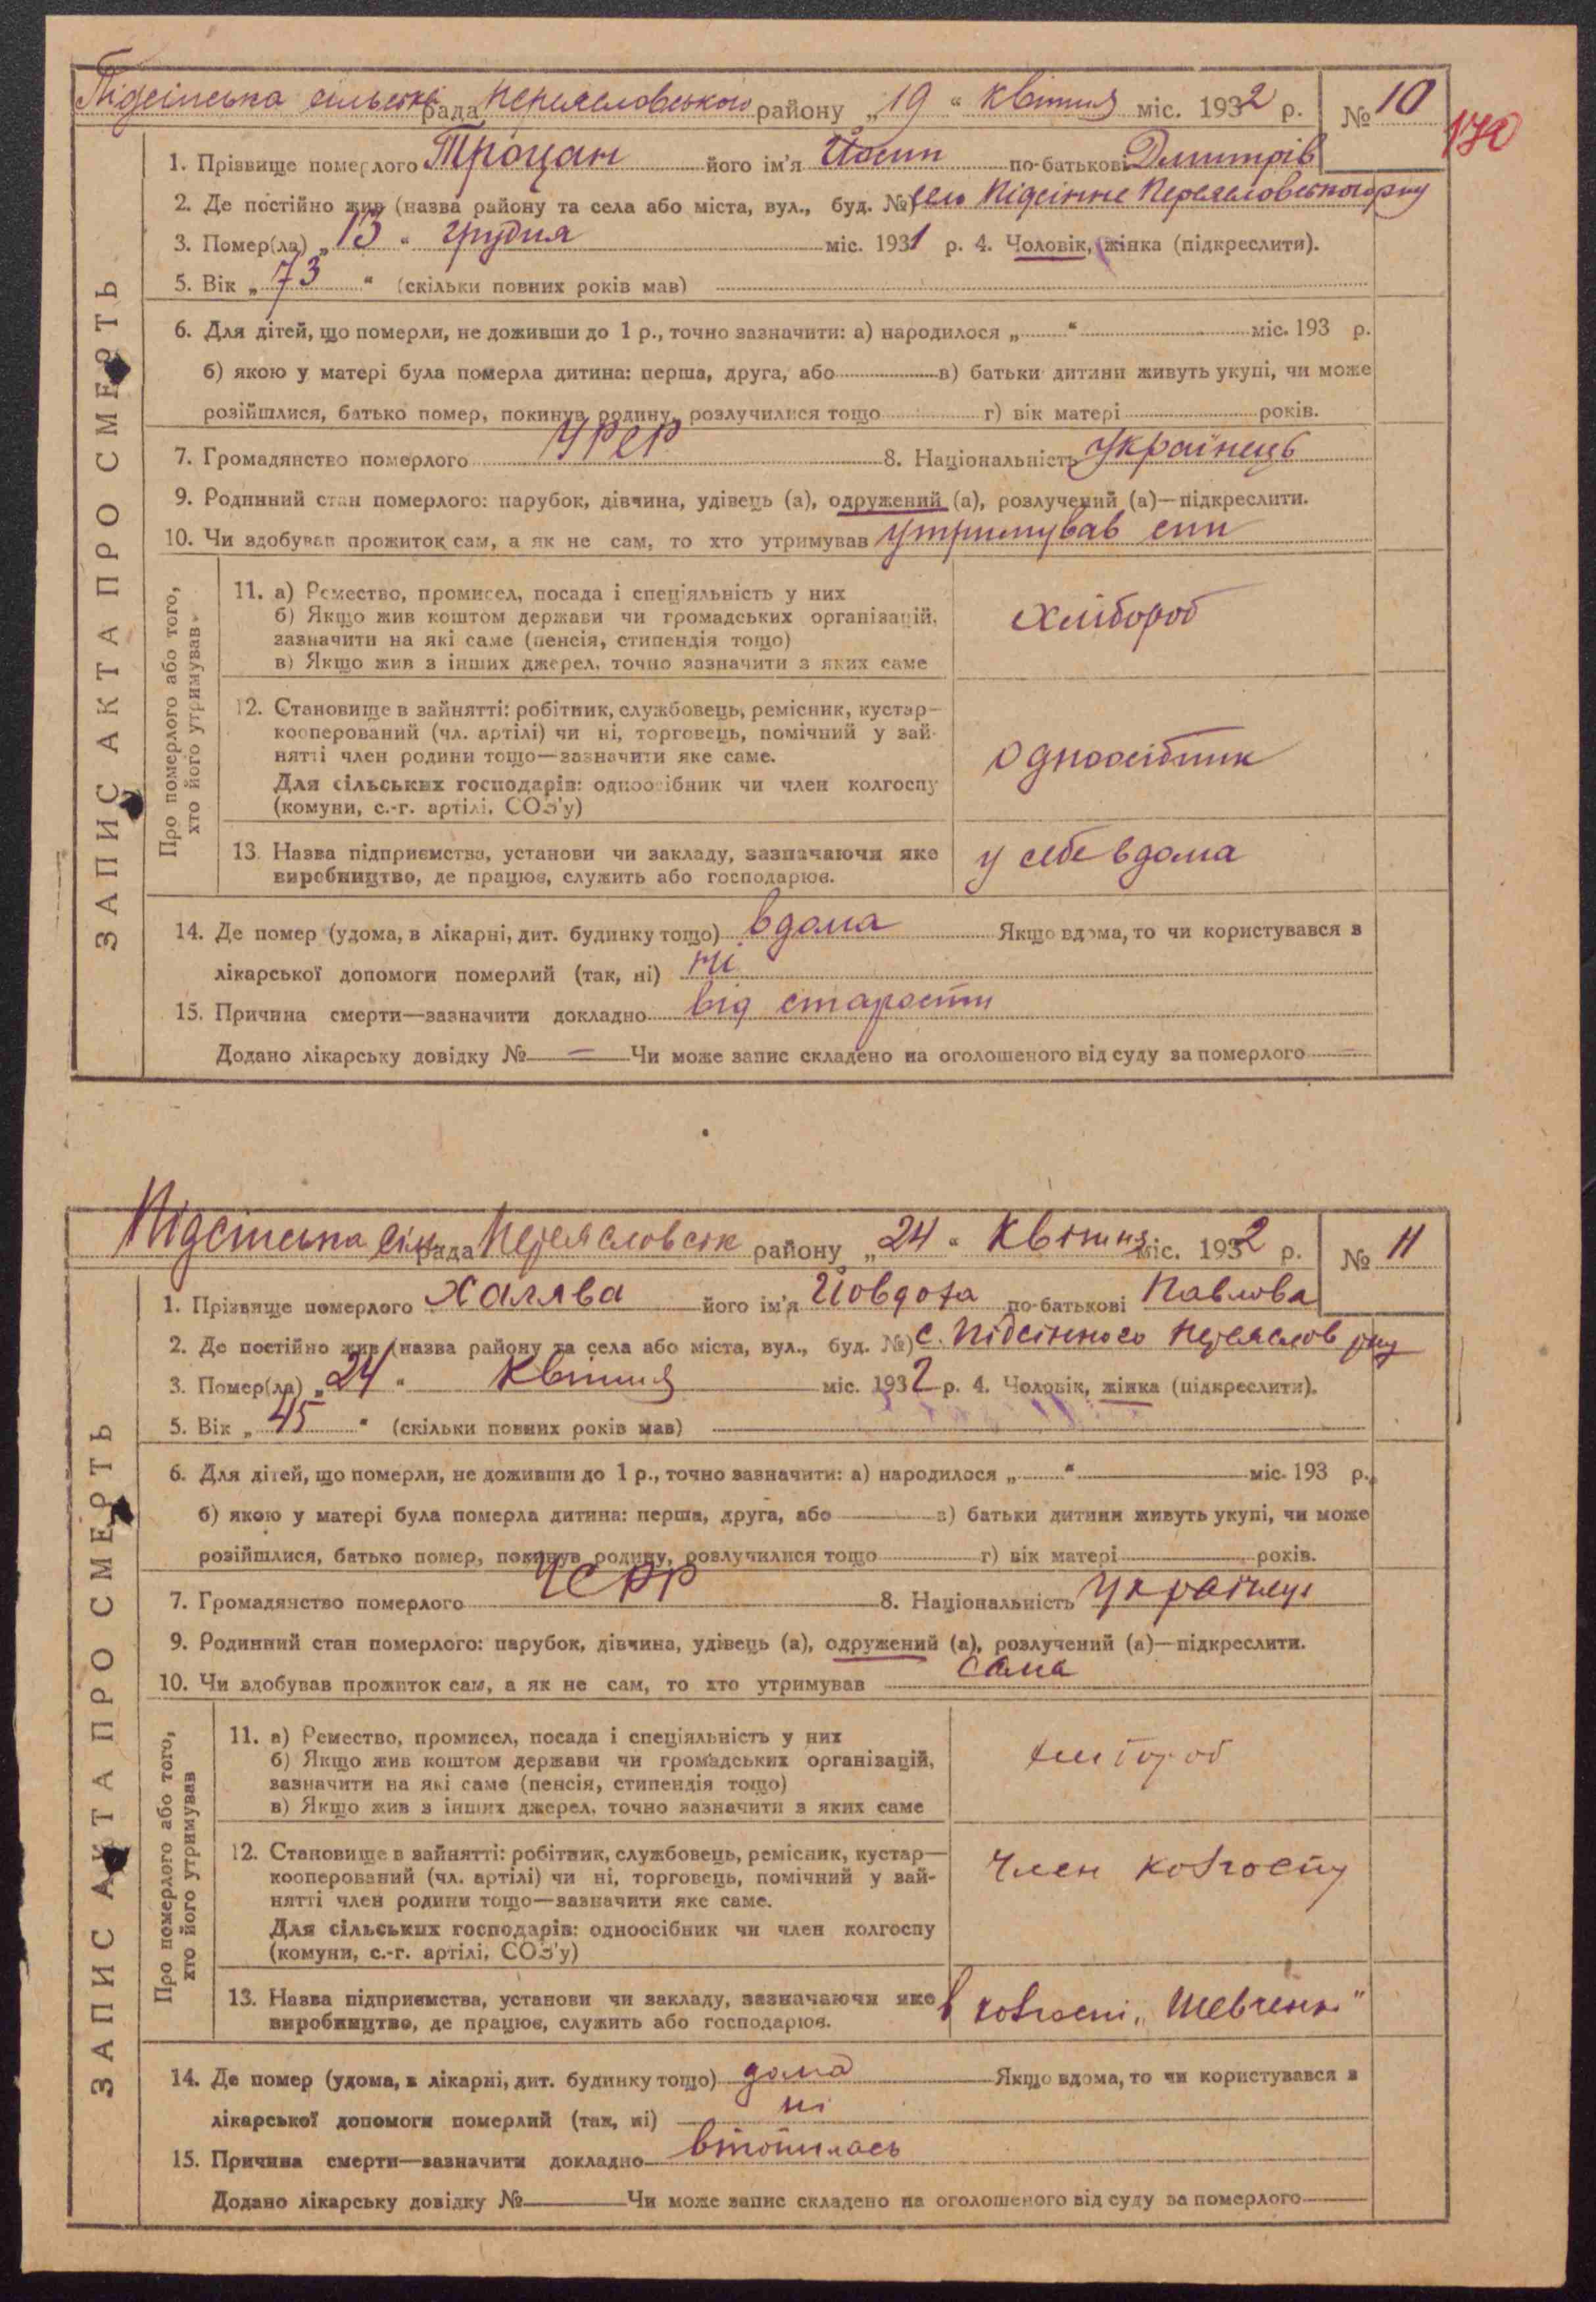 Підсінська сільська рада Переяславського району „19“ Квітня міс. 1932 р. № 10
170
1. Прізвище померлого Троцан його ім'я Йосип по-батькові Дмитрів
2. Де постійно жив (назва району та села або міста, вул., буд. №) село Підсінне Переяславського р-ну
3. Помер(ла) „13“ грудня міс. 1931 р. 4. Чоловік, жінка (підкреслити).
5. Вік „73“ (скільки повних років мав)
6. Для дітей, що померли, не доживши до 1 р., точно зазначити: а) народилося „ “ міс. 193 р.
б) якою у матері була померла дитина: перша, друга, або в) батьки дитини живуть укупі, чи може
розійшлися, батько помер, покинув родину, розлучилися тощо г) вік матері років.
7. Громадянство померлого УРСР 8. Національність Українець
9. Родинний стан померлого: парубок, дівчина, удівець (а), одружений (а), розлучений (а)—підкреслити.
10. Чи здобував прожиток сам, а як не сам, то хто утримував утримував син
ЗАПИС АКТА ПРО СМЕРТЬ
Про померлого або того,
хто його утримував
11. а) Ремество, промисел, посада і спеціяльність у них
б) Якщо жив коштом держави чи громадських організацій,
зазначити на які саме (пенсія, стипендія тощо)
в) Якщо жив з інших джерел, точно зазначити з яких саме
хлібороб
12. Становище в зайнятті: робітник, службовець, ремісник, кустар—
кооперований (чл. артілі) чи ні, торговець, помічний у зай-
нятті член родини тощо—зазначити яке саме.
Для сільських господарів: одноосібник чи член колгоспу
(комуни, с.-г. артілі, СОЗ'у)
одноосібник
13. Назва підприємства, установи чи закладу, зазначаючи яке
виробництво, де працює, служить або господарює.
у себе вдома
14. Де помер (удома, в лікарні, дит. будинку тощо) вдома Якщо вдома, то чи користувався з
лікарської допомоги померлий (так, ні) ні
15. Причина смерти—зазначити докладно від старости
Додано лікарську довідку № — Чи може запис складено на оголошеного від суду за померлого —
Підсінська сіл рада Переяславськ району „24“ Квітня міс. 1932 р. № 11
1. Прізвище померлого Халява його ім'я Йовдоха по-батькові Павлова
2. Де постійно жив (назва району та села або міста, вул., буд. №) с. Підсінного Переяслов р-ну
3. Помер(ла) „24“ Квітня міс. 1932 р. 4. Чоловік, жінка (підкреслити).
5. Вік „45“ (скільки повних років мав)
6. Для дітей, що померли, не доживши до 1 р., точно зазначити: а) народилося „ “ міс. 193 р.
б) якою у матері була померла дитина: перша, друга, або в) батьки дитини живуть укупі, чи може
розійшлися, батько помер, покинув родину, розлучилися тощо г) вік матері років.
7. Громадянство померлого УСРР 8. Національність Українці
9. Родинний стан померлого: парубок, дівчина, удівець (а), одружений (а), розлучений (а)—підкреслити.
10. Чи здобував прожиток сам, а як не сам, то хто утримував сама
ЗАПИС АКТА ПРО СМЕРТЬ
Про померлого або того,
хто його утримував
11. а) Ремество, промисел, посада і спеціяльність у них
б) Якщо жив коштом держави чи громадських організацій,
зазначити на які саме (пенсія, стипендія тощо)
в) Якщо жив з інших джерел, точно зазначити з яких саме
хлібороб
12. Становище в зайнятті: робітник, службовець, ремісник, кустар—
кооперований (чл. артілі) чи ні, торговець, помічний у зай-
нятті член родини тощо—зазначити яке саме.
Для сільських господарів: одноосібник чи член колгоспу
(комуни, с.-г. артілі, СОЗ'у)
член колгоспу
13. Назва підприємства, установи чи закладу, зазначаючи яке
виробництво, де працює, служить або господарює.
в колгоспі „Шевченк"
14. Де помер (удома, в лікарні, дит. будинку тощо) дома Якщо вдома, то чи користувався з
лікарської допомоги померлий (так, ні) ні
15. Причина смерти—зазначити докладно втопилась
Додано лікарську довідку № Чи може запис складено на оголошеного від суду за померлого